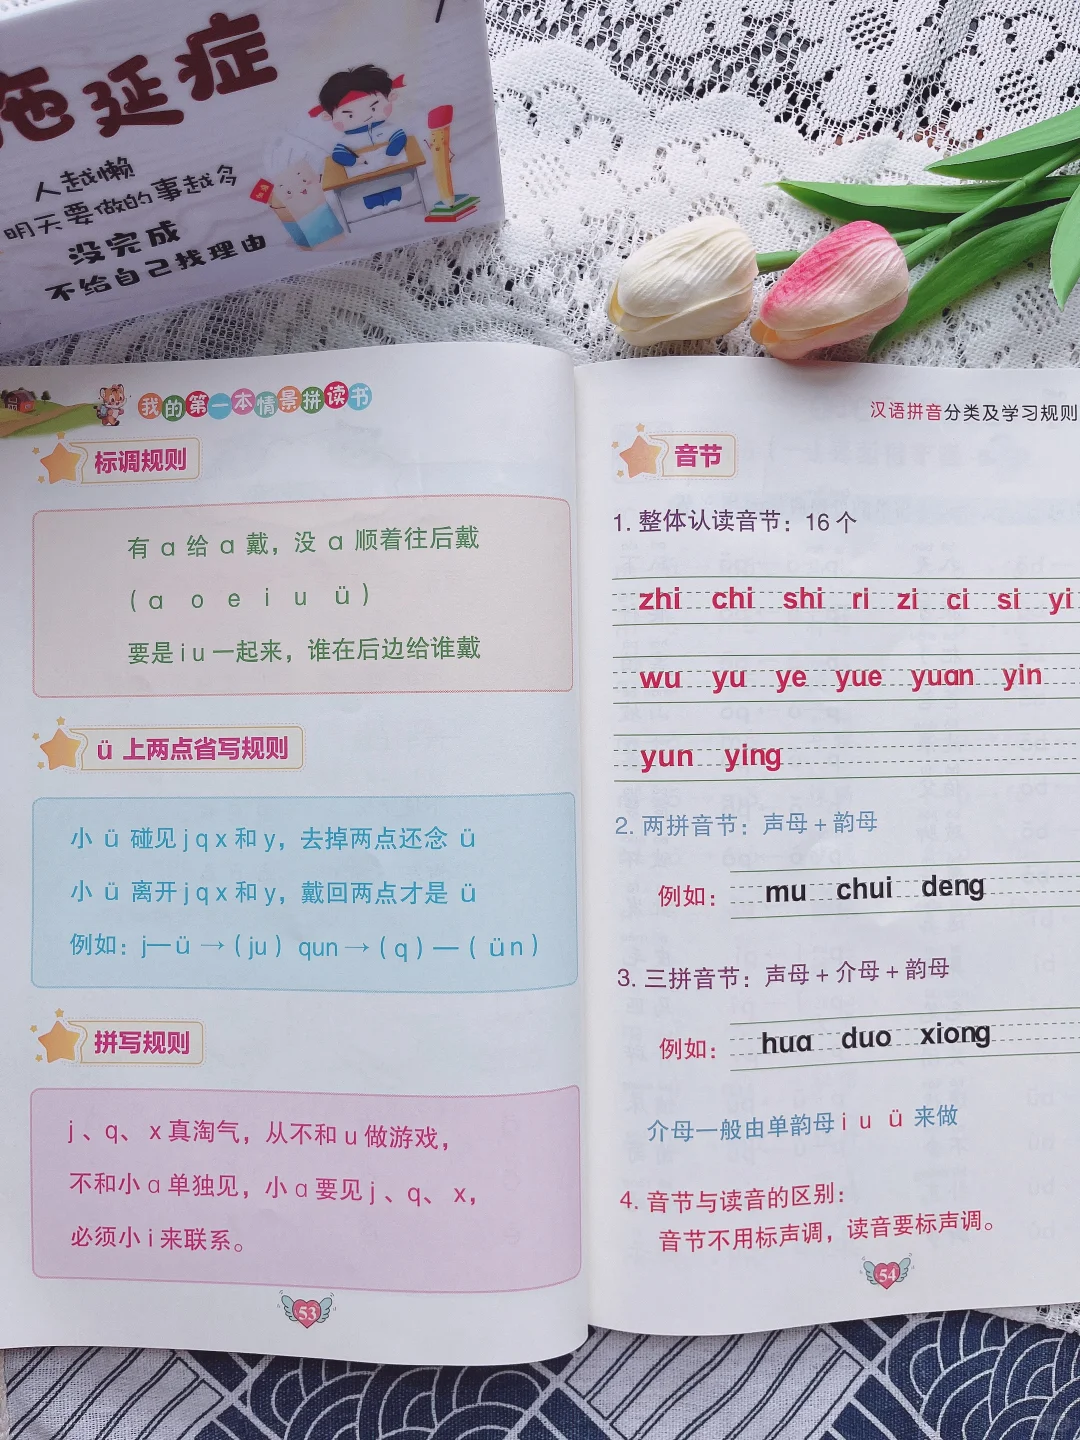 拖延症
人越懒
明天要做的事越多
没完成
不给自己找理由
我的第一本情景拼读书
标调规则
有 ɑ 给 ɑ 戴，没 ɑ 顺着往后戴
( ɑ o e i u ü )
要是 i u 一起来，谁在后边给谁戴
ü 上两点省写规则
小 ü 碰见 j q x 和 y，去掉两点还念 ü
小 ü 离开 j q x 和 y，戴回两点才是 ü
例如：j—ü →（ju） qun →（q）—（ün）
拼写规则
j 、q、 x 真淘气，从不和 u 做游戏，
不和小 ɑ 单独见，小 ɑ 要见 j 、q、 x，
必须小 i 来联系。
53
汉语拼音分类及学习规则
音节
1. 整体认读音节：16 个
zhi chi shi ri zi ci si yi
wu yu ye yue yuɑn yin
yun ying
2. 两拼音节：声母 + 韵母
例如： mu chui deng
3. 三拼音节：声母 + 介母 + 韵母
例如： huɑ duo xiong
介母一般由单韵母 i u ü 来做
4. 音节与读音的区别：
音节不用标声调，读音要标声调。
54